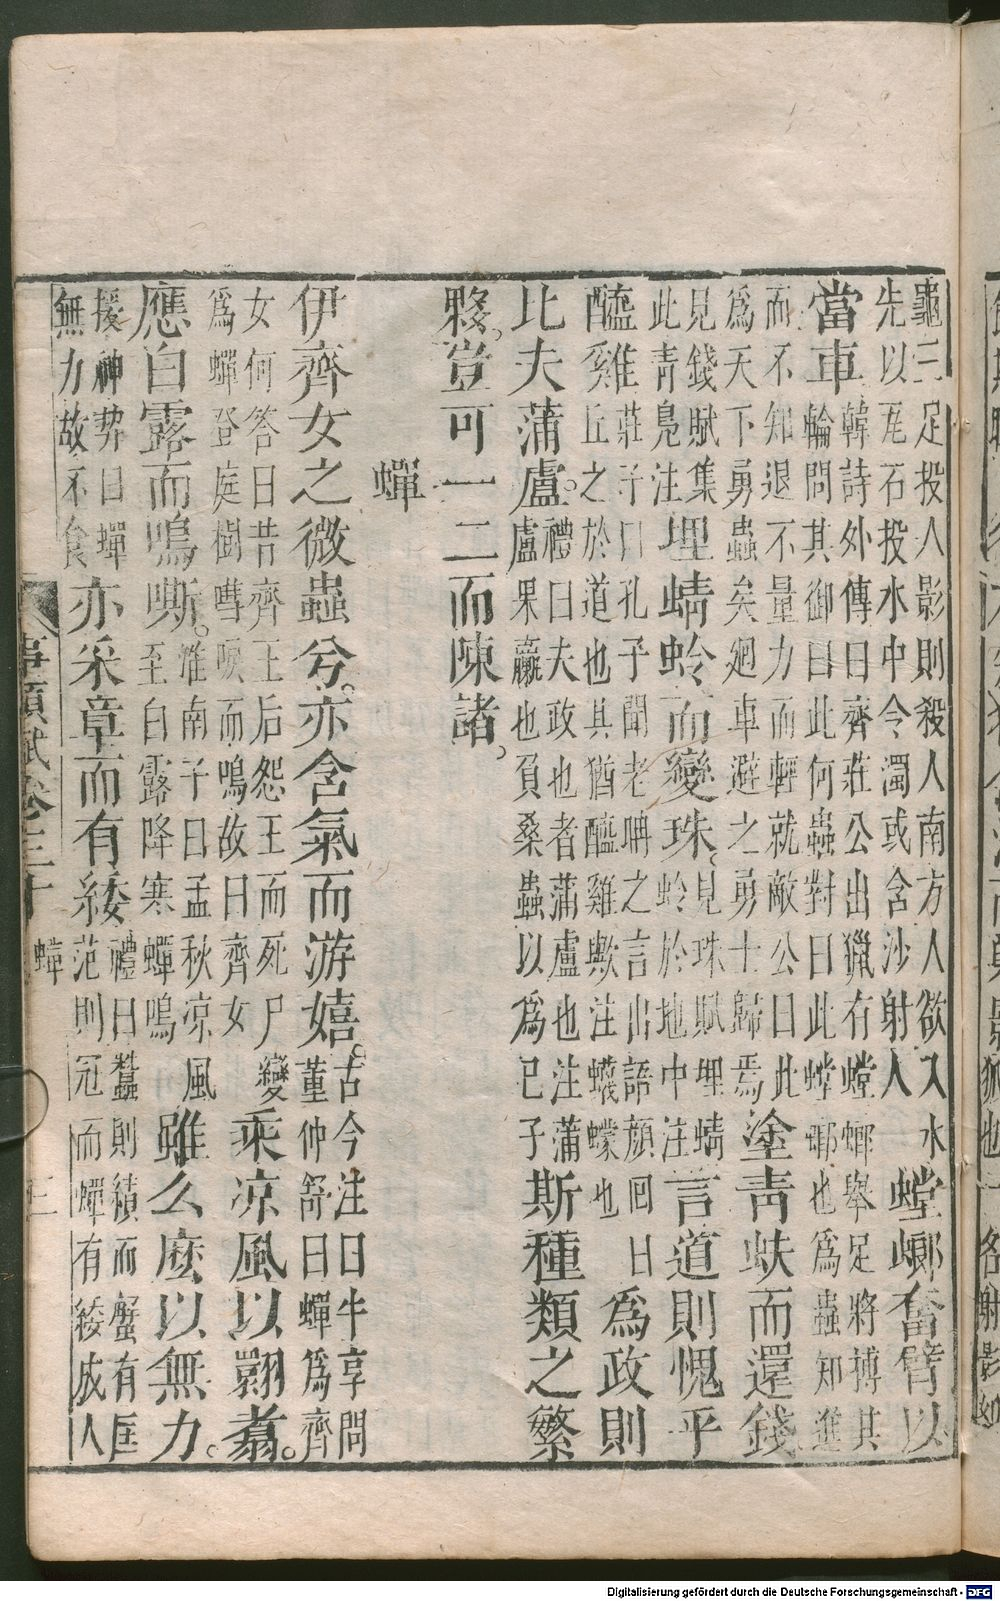 鼈三足投人影則殺人南方人欲入水
先以瓦石投水中令濁或含沙射人 螳螂奮臂以
當車 韓詩外傳曰齊莊公出獵有螳螂舉足將搏其
輪問其御曰此何蟲對曰此螳螂也爲蟲知進
而不知退不量力而輕就敵公曰此
爲天下勇蟲矣廻車避之勇士歸焉 塗青蚨而還錢
見錢賦集
此青鳧注 埋蜻蛉而變珠 見珠賦埋蜻
蛉於地中注 言道則愧乎
醯雞 莊子曰孔子聞老聃之言出語顏回曰
丘之於道也其猶醯雞歟注蠛蠓也 爲政則
比夫蒲盧 禮曰夫政也者蒲盧也注蒲
盧果蠃也負桑蟲以爲已子 斯種類之繁
夥豈可一二而陳諸
蟬
伊齊女之微蟲兮亦含氣而游嬉 古今注曰牛享問
董仲舒曰蟬爲齊
女何答曰昔齊王后怨王而死尸變
爲蟬登庭樹嘒唳而鳴故曰齊女 乘凉風以翾翥
應白露而鳴嘶 淮南子曰孟秋凉風
至白露降寒蟬鳴 雖么麽以無力
援神契曰蟬
無力故不食 亦采章而有緌 禮曰蠶則績而蟹有匡
范則冠而蟬有緌成人
事類賦卷三十 蟬 三